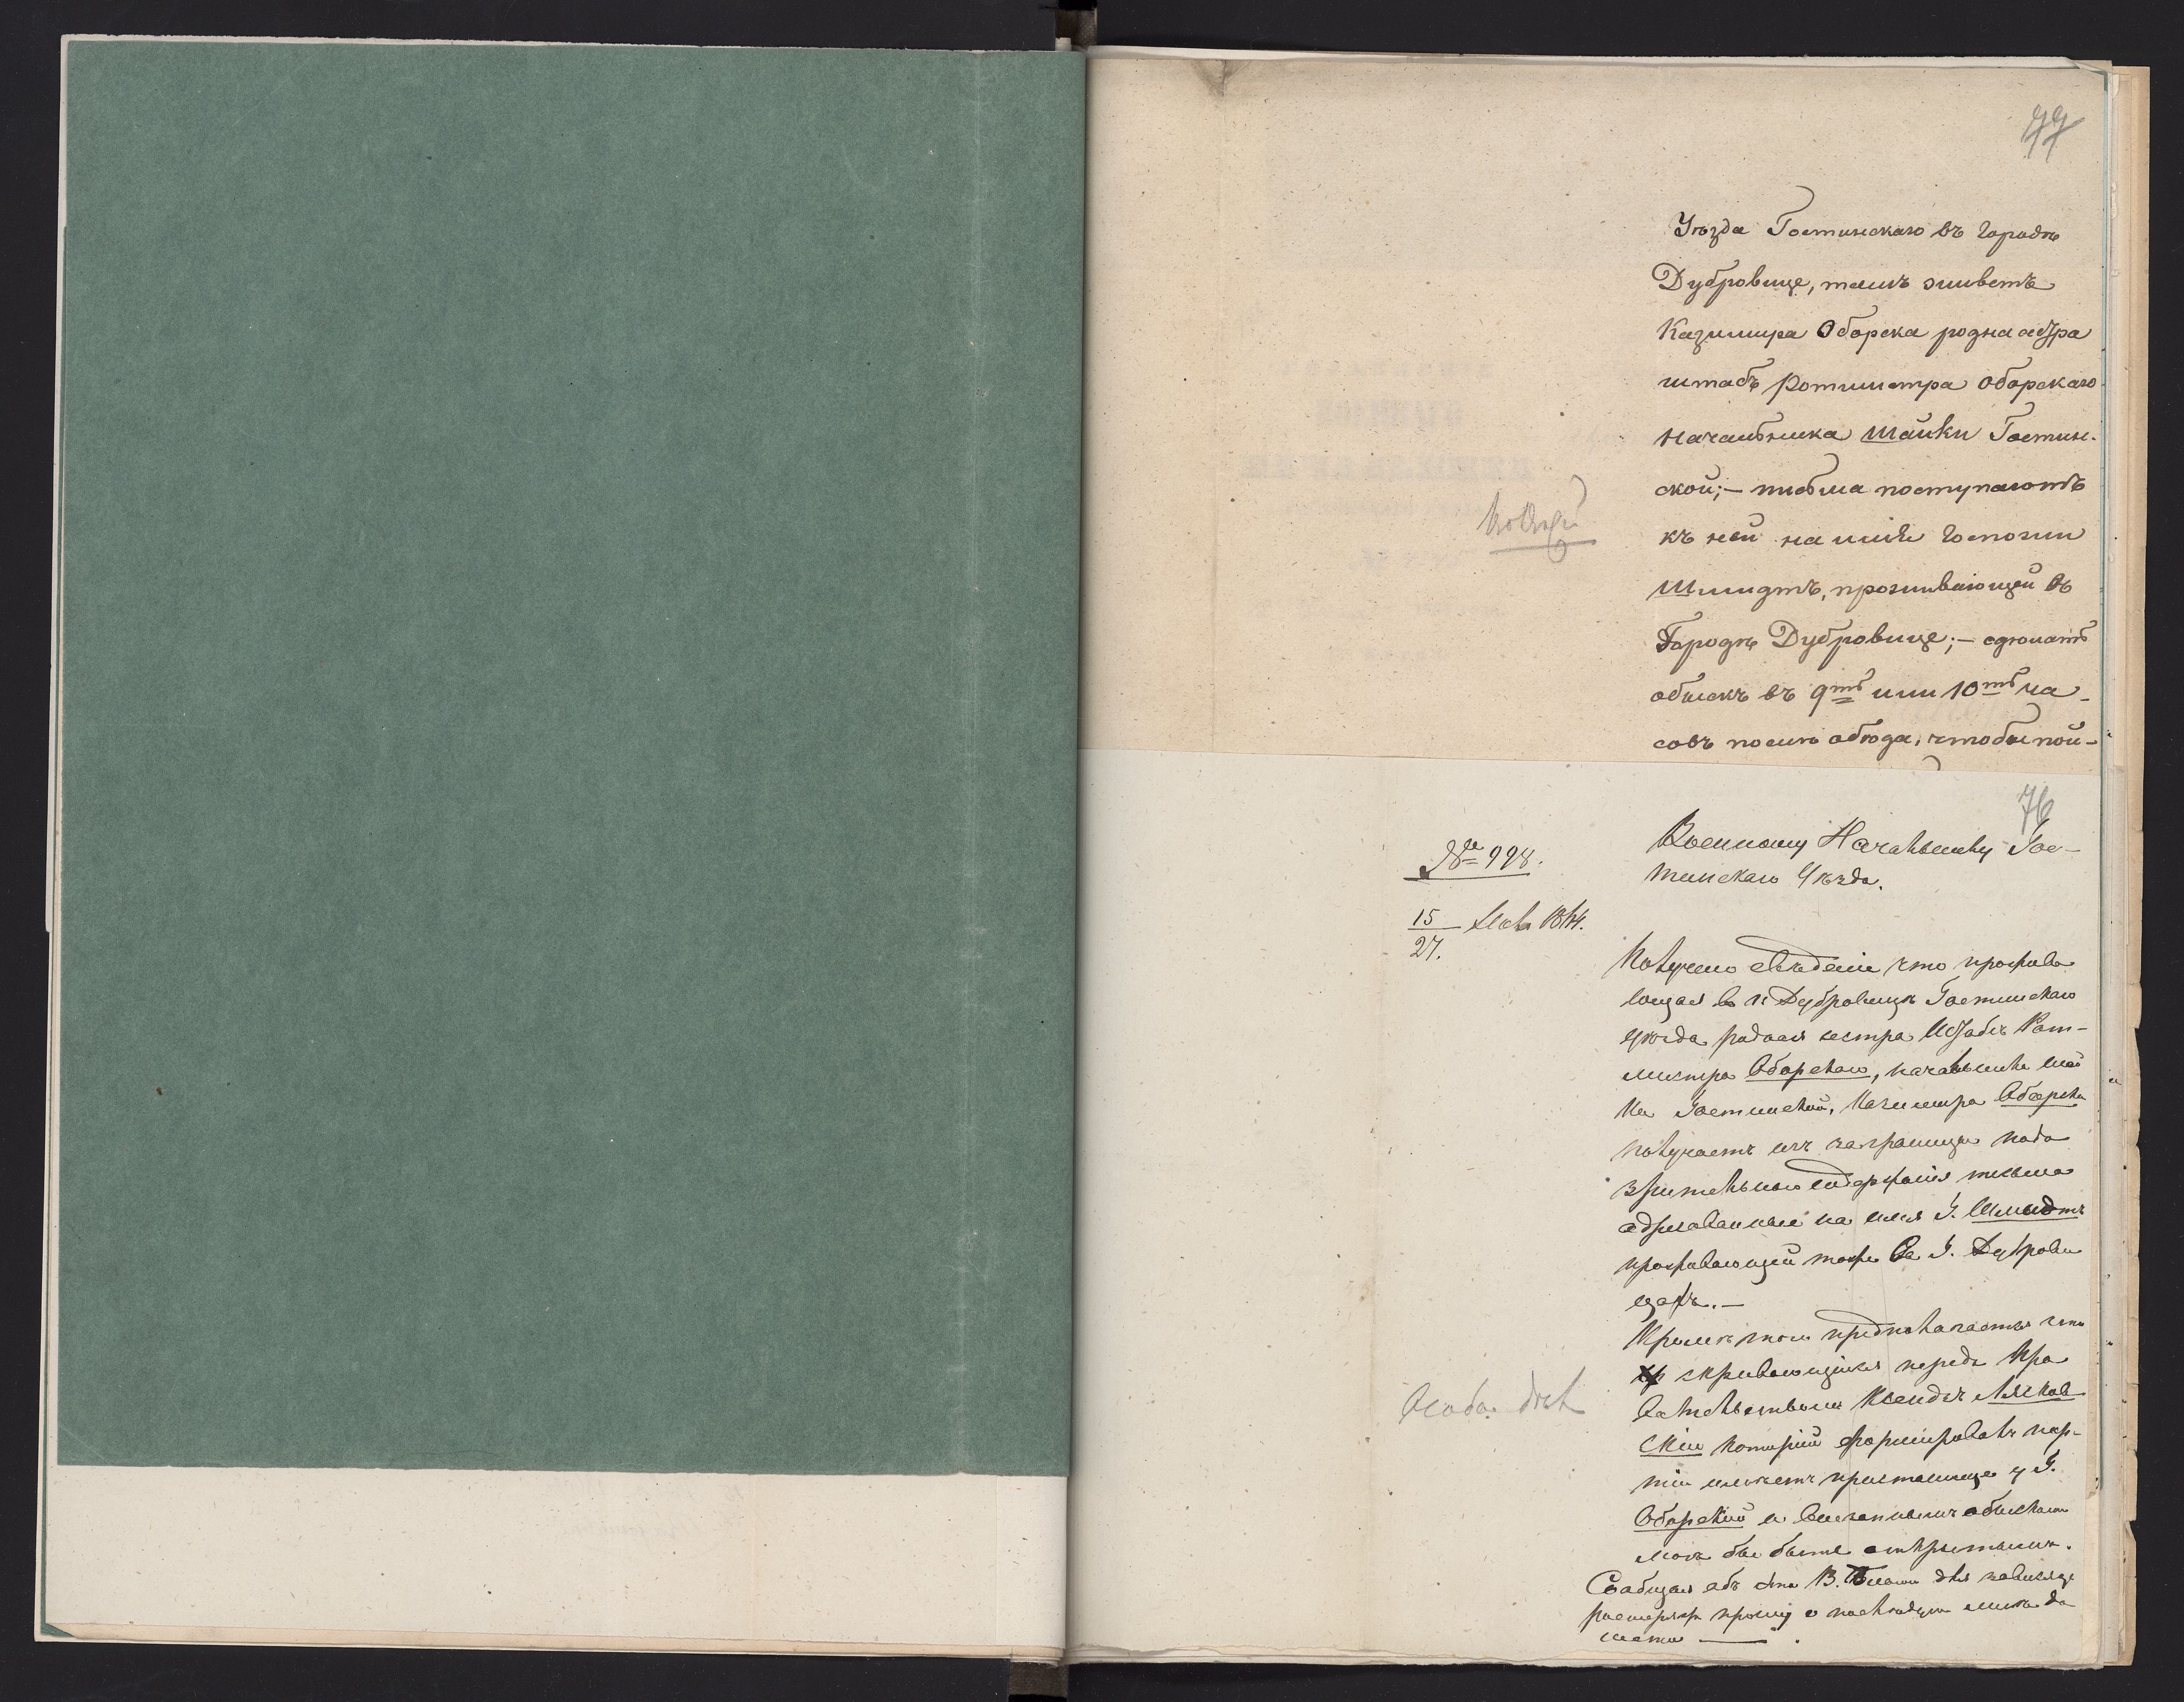 77
Уѣзда Гостинскаго въ городѣ
Дубровице, тамъ живетъ
Казимира Оборска родна сестра
штабъ Ротмистра Оборскаго
начальника шайки Гостин-
ской; — письма поступаютъ
къ ней на имѣ госпожи
Шмидтъ, проживающей въ
Городѣ Дубровице; — сдѣлать
обыскъ въ 9ть или 10ть ча-
совъ послѣ обѣда, чтобы пой-
76
№ 998.
15/27. 1864.
Военному Начальнику Гос-
тинскаго Уѣзда.
Получено свѣденіе что прожива
ющая въ г. Дубровицѣ Гостинскаго
уѣзда родная сестра Штабъ Рот-
мистра Оборскаго, начальника шай
ки Гостинской, Казимира Оборска
получаетъ изъ заграницы подо
зрительнаго содержанія письма
адресованные на имя Г. Шмидтъ
проживающей тоже въ Г. Дуброви
цахъ. —
Кромѣ того предполагается что
скрывающійся передъ Пра
вительствомъ Ксендзъ
скій который формировалъ пар-
тіи имѣетъ пристанище у Г.
Оборской и внезапнымъ обыскомъ
могъ бы быть открытымъ.
Сообщая объ этомъ В. для
прошу о послѣдующемъ мнѣ до
нести —